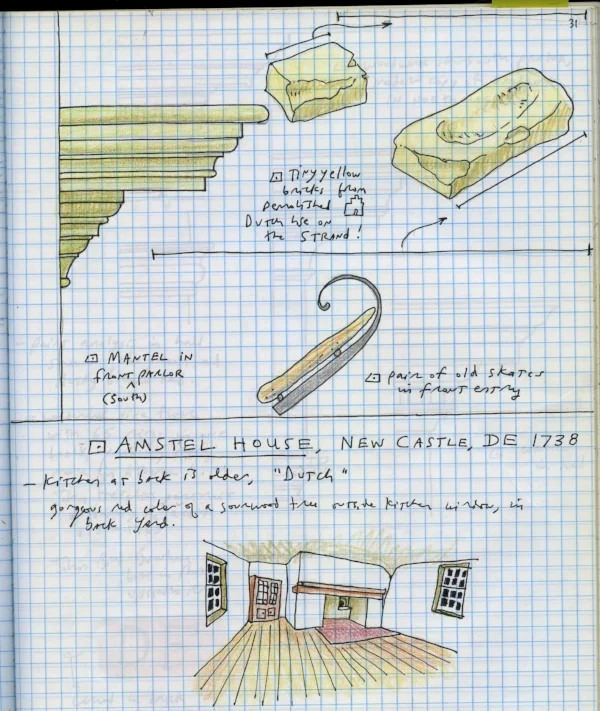 31
Tiny yellow
bricks from
demolished
Dutch hse on
the STRAND!
MANTEL IN
front PARLOR
(South)
pair of old skates
in front entry
AMSTEL HOUSE, NEW CASTLE, DE 1738
- Kitchen at back is older, "DUTCH"
gorgeous red color of a sourwood tree outside kitchen window, in
back yard.